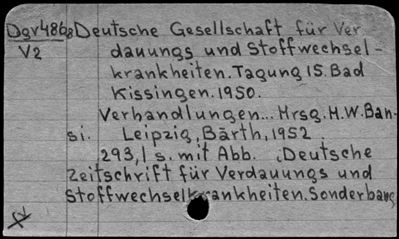 Dgv486 8 Deutsche Gesellschaft für Ver
V2 dauungs und Stoffwechsel-
krankheiten. Tagung 15. Bad
Kissingen. 1950.
Verhandlungen... Hrsg. H.W. Ban-
si. Leipzig, Barth, 1952.
293,1 s. mit Abb. (Deutsche
Zeitschrift für Verdauungs und
Stoffwechselkrankheiten. Sonderband